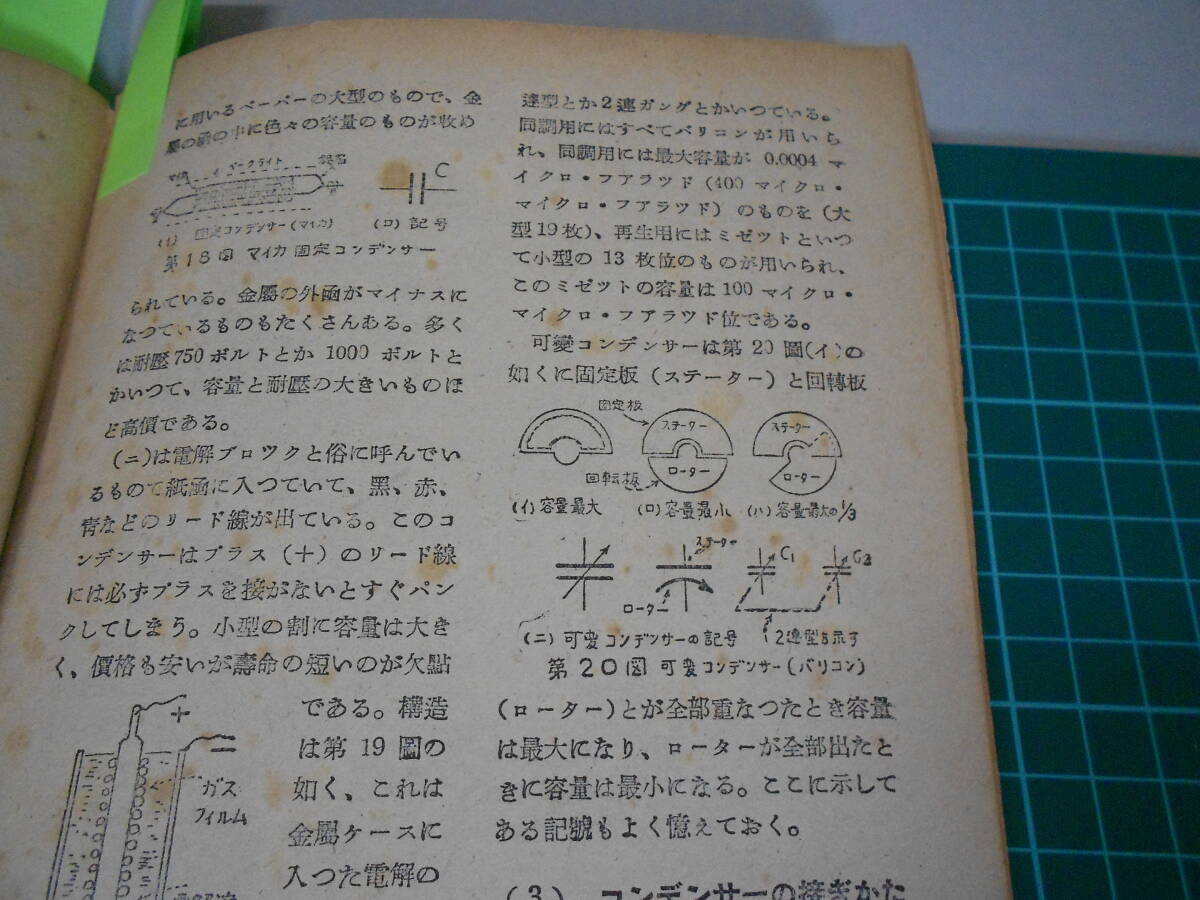 に用いるペーパーの大型のもので、金
の中に色々の容量のものが收め
ベークライト
C
(イ) 固定コンデンサー(マイカ)
(ロ) 記号
第18図 マイカ固定コンデンサー
られている。金屬の外函がマイナスに
なつているものもたくさんある。多く
は耐壓750ボルトとか1000ボルトと
かいつて、容量と耐壓の大きいものほ
ど高價である。
(ニ)は電解ブロツクと俗に呼んでい
るもので紙函に入つていて、黑、赤、
靑などのリード線が出ている。このコ
ンデンサーはプラス(+)のリード線
には必ずプラスを接がないとすぐパン
クしてしまう。小型の割に容量は大き
く、價格も安いが壽命の短いのが欠點
である。構造
は第19圖の
如く、これは
金屬ケースに
入つた電解の
+
ガス
フィルム
連型とか2連ガングとかいつている。
同調用にはすべてバリコンが用いら
れ、同調用には最大容量が 0.0004 マ
イクロ・フアラツド(400 マイクロ・
マイクロ・フアラツド)のものを(大
型19枚)、再生用にはミゼツトといつ
て小型の 13 枚位のものが用いられ、
このミゼツトの容量は100マイクロ・
マイクロ・フアラツド位である。
可變コンデンサーは第20圖(イ)の
如くに固定板(ステーター)と回轉板
固定板
ステーター
ステーター
回転板
ローター
ローター
(イ)容量最大
(ロ)容量最小
(ハ)容量最大の1/3
ステーター
ローター
C1
C2
(ニ)可変コンデンサーの記号
2連型を示す
第20図 可変コンデンサー(バリコン)
(ローター)とが全部重なつたとき容量
は最大になり、ローターが全部出たと
きに容量は最小になる。ここに示して
ある記號もよく憶えておく。
(3) コンデンサーの接ぎかた